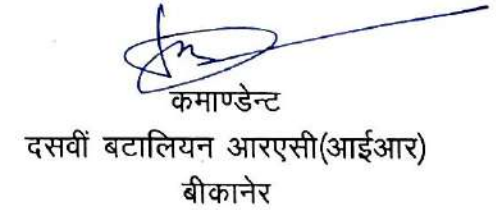 कमाण्डेन्ट
दसवीं बटालियन आरएसी(आईआर)
बीकानेर